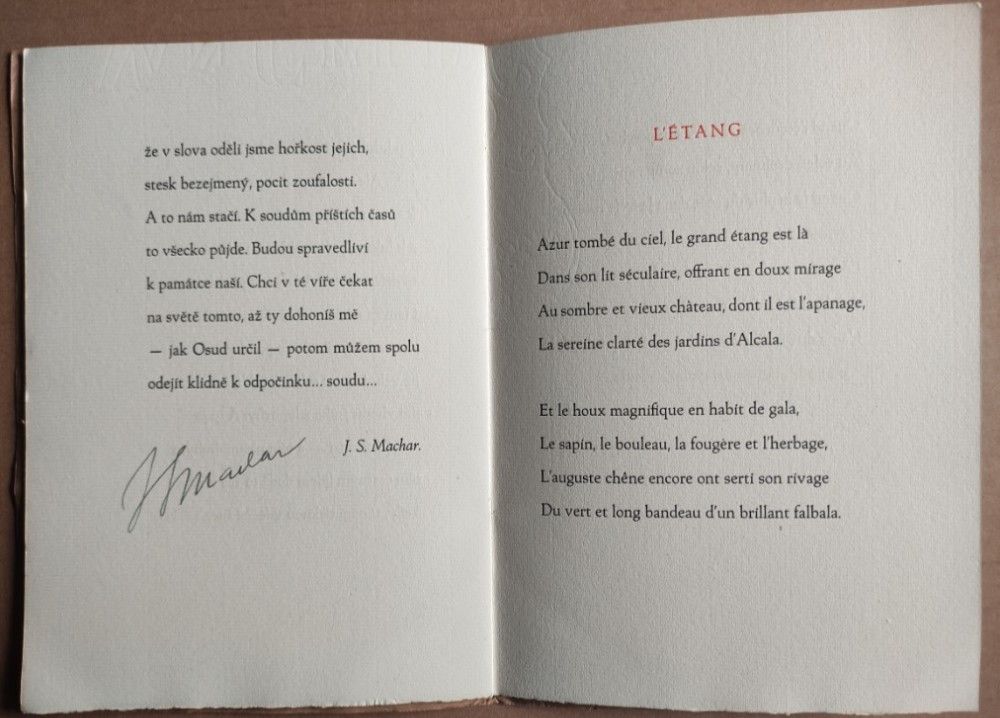 že v slova oděli jsme hořkost jejich,
stesk bezejmený, pocit zoufalosti.
A to nám stačí. K soudům příštích časů
to všecko půjde. Budou spravedliví
k památce naší. Chci v té víře čekat
na světě tomto, až ty dohoníš mě
— jak Osud určil — potom můžem spolu
odejít klidně k odpočinku... soudu...
J. S. Machar.
JSMachar
L'ÉTANG
Azur tombé du ciel, le grand étang est là
Dans son lit séculaire, offrant en doux mirage
Au sombre et vieux château, dont il est l'apanage,
La sereine clarté des jardins d'Alcala.
Et le houx magnifique en habit de gala,
Le sapin, le bouleau, la fougère et l'herbage,
L'auguste chêne encore ont serti son rivage
Du vert et long bandeau d'un brillant falbala.